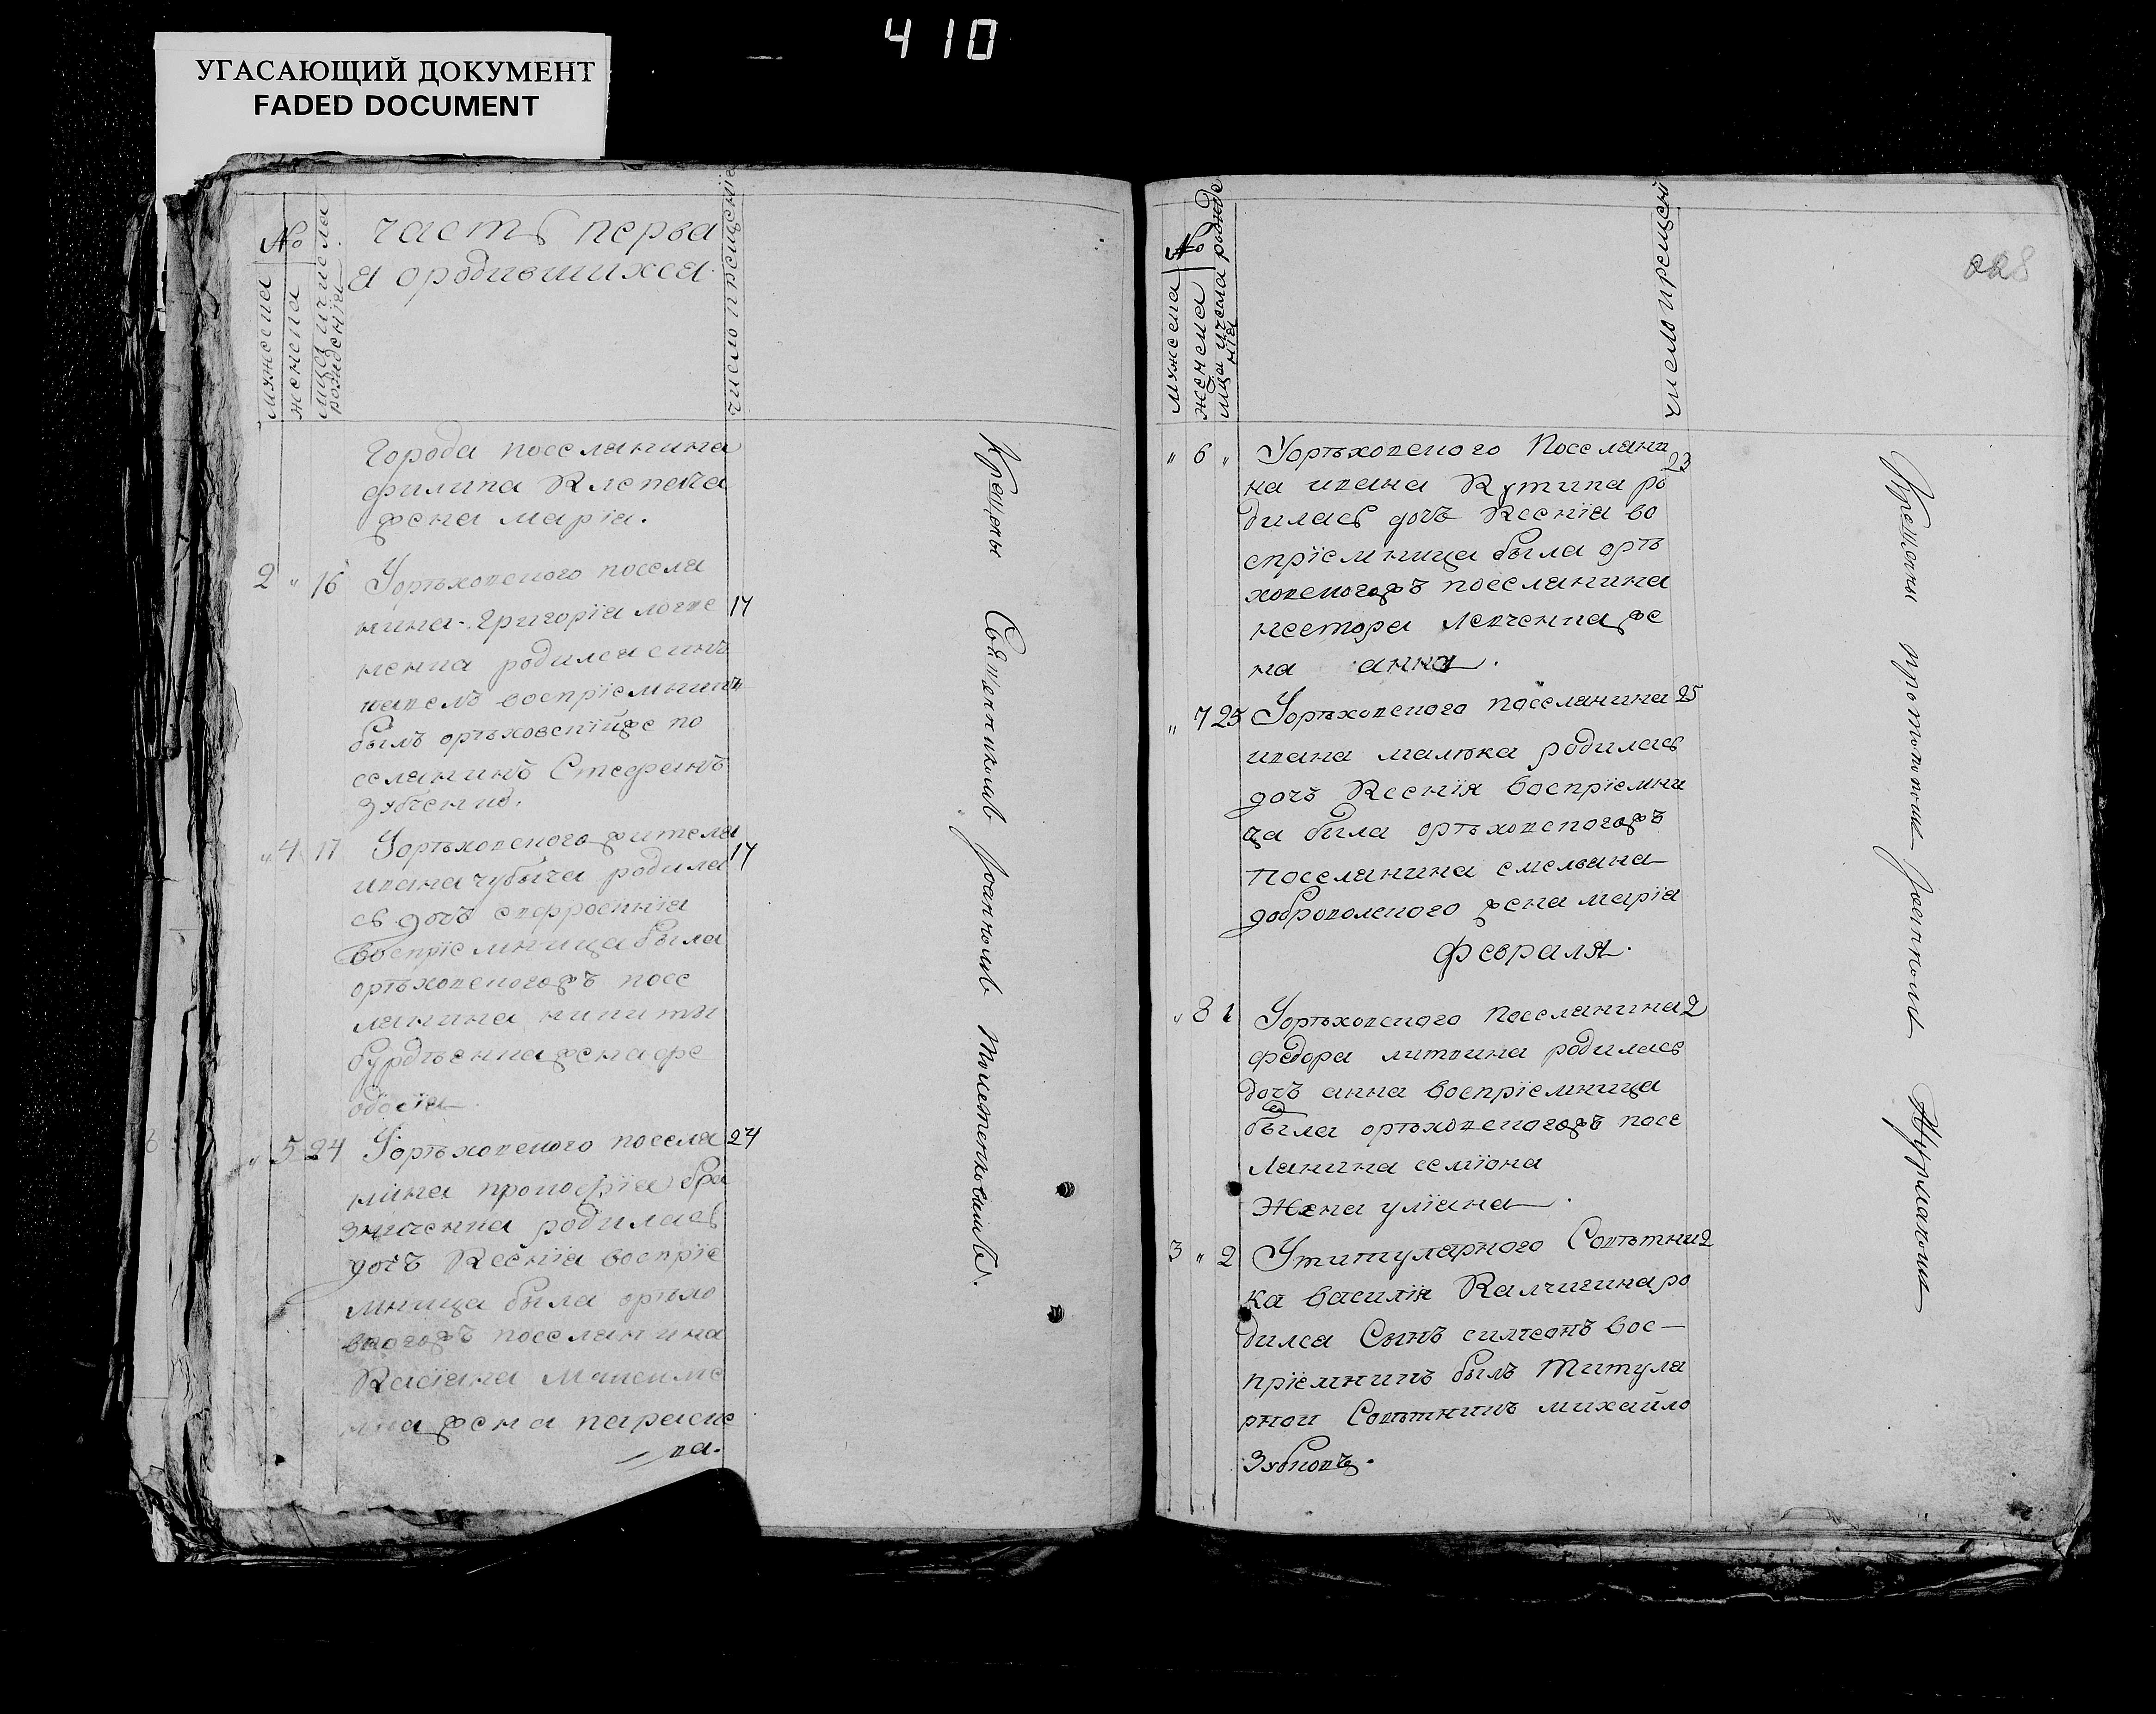 410
УГАСАЮЩИЙ ДОКУМЕНТ
FADED DOCUMENT
№
мужеска
женска
мца и числа
рожденїя
часть перва
я ородившихся
число крещенїе
города поселянина
филипа Клепача
жена марїа.
2 " 16 Уорѣховского посели
нина григорїа логве 17
ненка родился синъ
воспрїемникъ
былъ орѣховскїйже по
селянинъ Стефанъ
Зубченко.
" 4 17 Уорѣховского жителя
ивана чубича родила 17
сь дочъ евфросинїа
воспрїемница была
орѣховскогожъ посе
лянина никиты
бурдѣенка жена фе
одосїя
" 5 24 Уорѣховского поселя 24
нина прокофїа бра
зниченка родилась
дочъ Ксенїа воспрїе
мница была орѣхо
вкогожъ поселянина
Касїана максиме
нка жена параске
ва.
Крещены Священникомъ Іоанномъ
№
мужеска
женска
мца и числа рожде
нїя
число крещенїй
" 6 " Уорѣховского Поселяни 23
на ивана Кутина ро
дилась дочъ Ксенїа во
спрїемница была орѣ
ховскогожъ поселянина
нестора левченка же
на анна.
" 7 25 Уорѣховского поселянина 25
ивана малѣка родилась
дочъ Ксенїя воспрїемни
ца била орѣховскогожъ
поселянина емельяна
доброволского жена марїа
февраля.
" 8 1 Уорѣховского поселянина 2
федора литвина родилась
дочъ анна воспрїемница
была орѣховскогожъ посе
лянина семїона
Жена улїана.
3 " 2 Утитулярного Совѣтни 2
ка василїя Калчигина ро
дился Сынъ симеонъ вос-
прїемникъ былъ Титуля
рной Совѣтникъ михайло
Зубковъ.
Крещены протопопомъ Іоанномъ